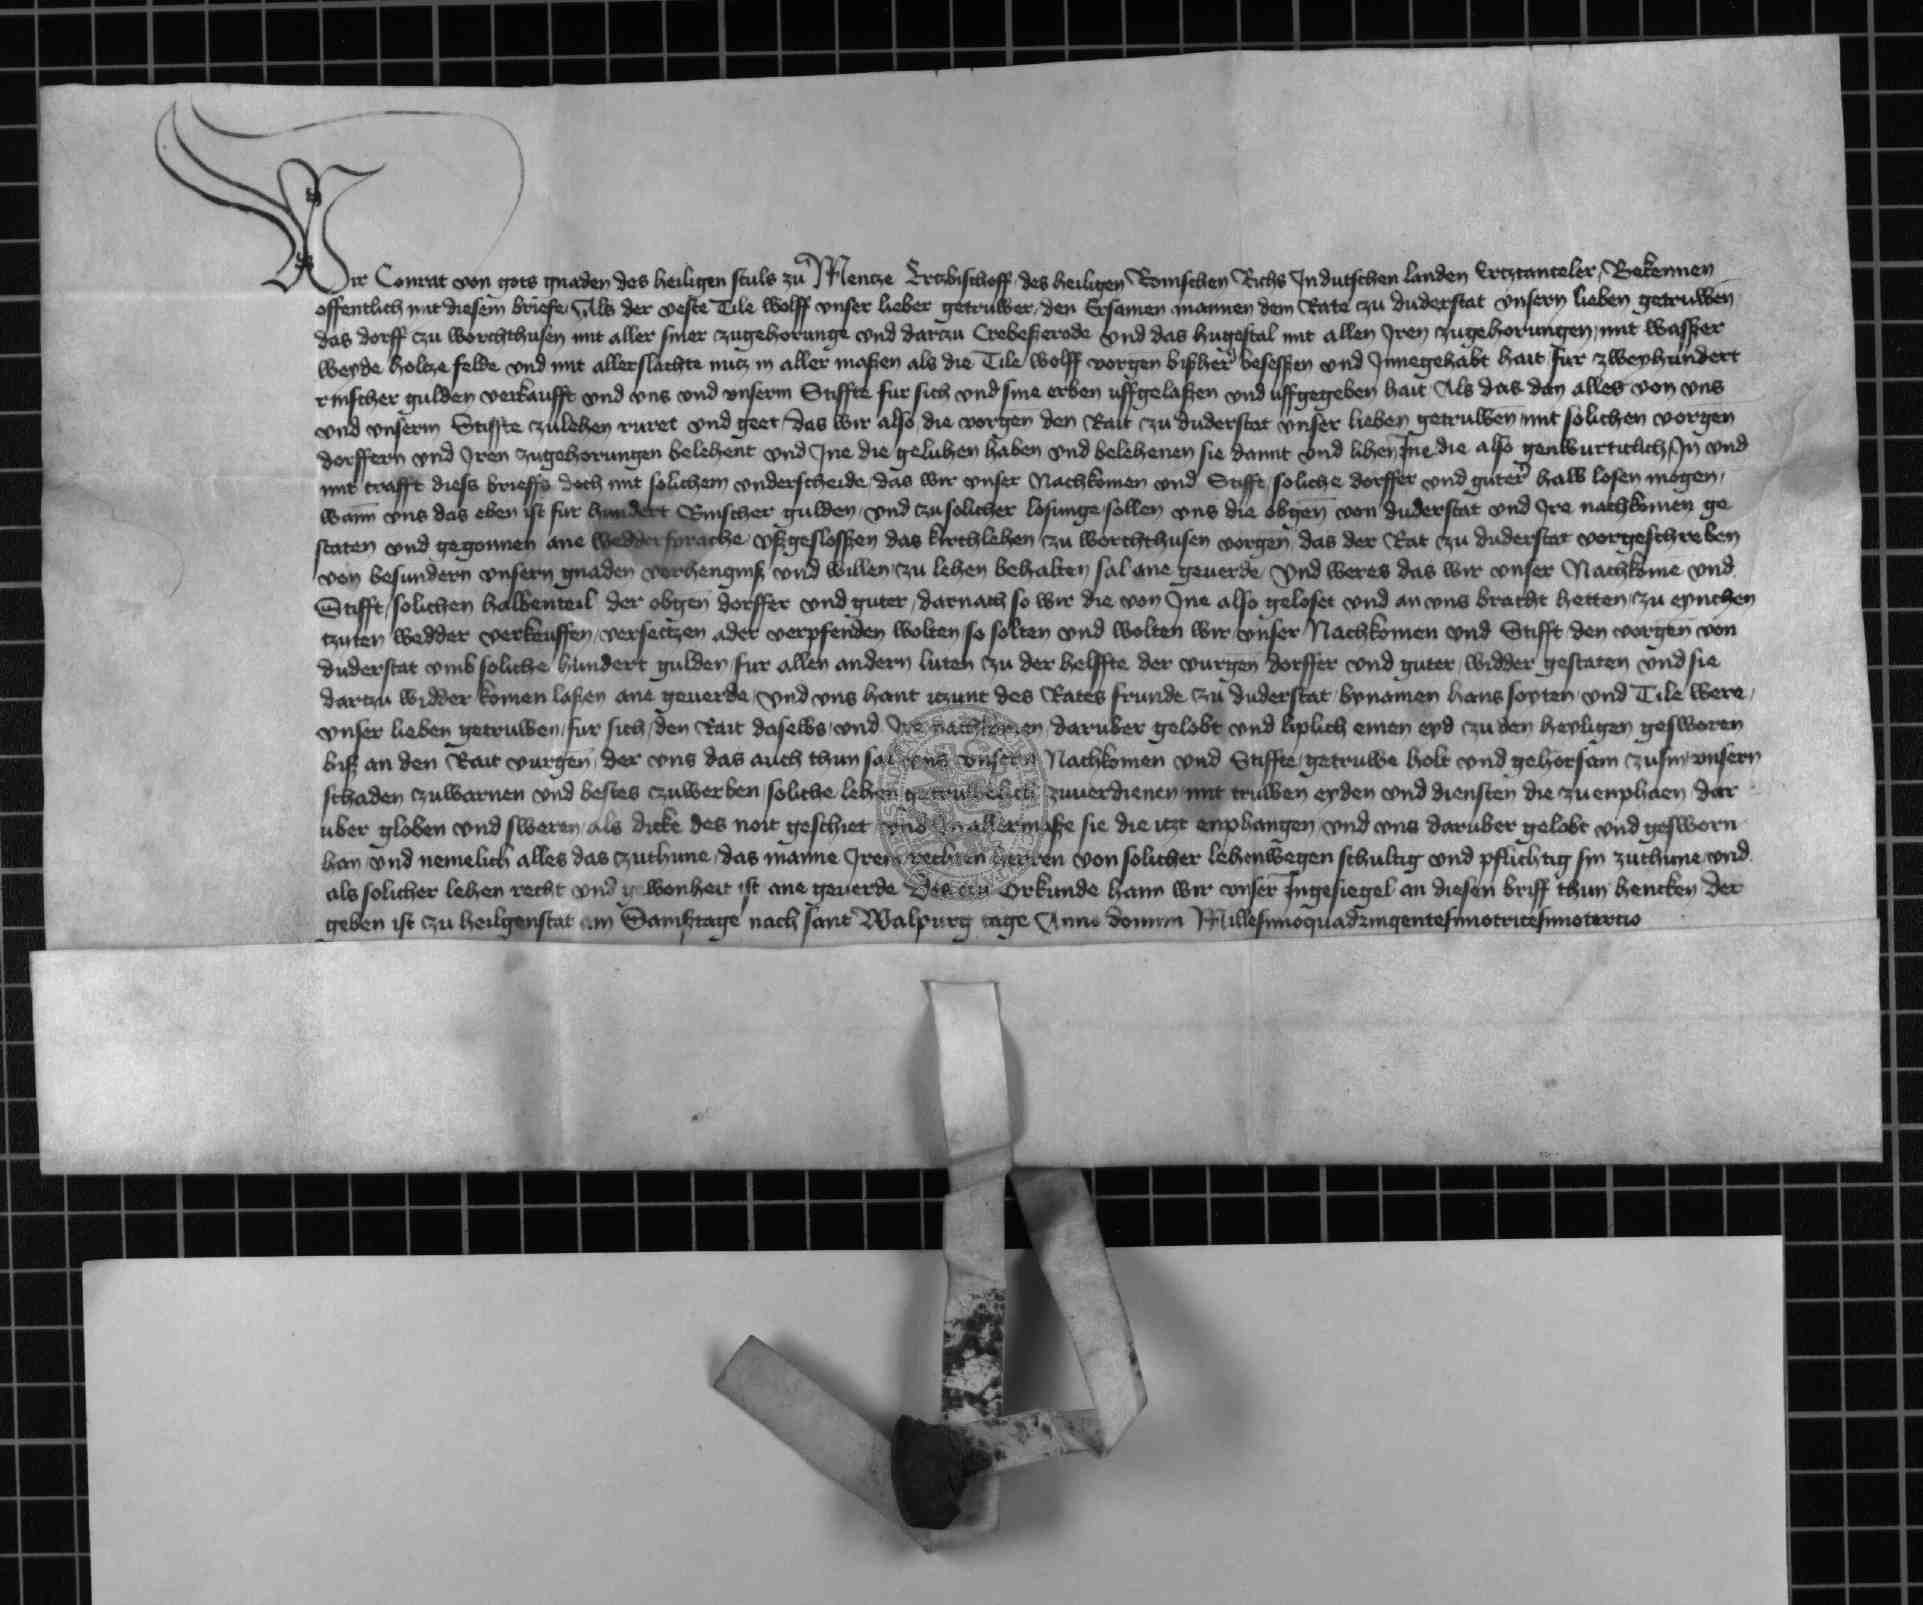 Wir Conrat von gots gnaden des heiligen stuls zu Mencze Erczbischoff des heiligen Romischen Richs In dutschen landen Ertzcanceler, Bekennen
offentlich mit diesem briefe, Als der veste Tile wolff vnser lieber getruwer, den Ersamen mannen dem Rate czu duderstat vnsern lieben getruwen
das dorff czu worchthusen mit aller siner zugehorunge vnd darczu Crebeßerode vnd das hugestal mit allen Iren zugehorungen, mit waßßer
weyde holcze felde vnd mit allerslachte nucz in aller maßen als die Tile wolff vorgen bißher beseßen vnd Innegehabt hait fur zweyhundert
rinscher gulden verkaufft vnd vns vnd vnserm Stiffte fur sich vnd sine erben uffgelaßen vnd uffgegeben hait Als das dan alles von vns
vnd vnserm Stiffte zulehen ruret vnd geet, das wir also die vorgen den Rait zu duderstat vnser lieben getruwen mit solichen vorgen
dorffern vnd Iren zugehorungen belehent vnd Ine die geluhen haben vnd belehenen sie damit vnd lihen Ine die also genwurticlich In vnd
mit crafft diess brieffs doch mit solichem vnderscheide, das wir vnser Nachkomen vnd Stifft soliche dorffer vnd guter halb losen mogen,
wann vns das eben ist fur hundert Rinscher gulden, vnd zu solicher losunge sollen vns die obgen von duderstat vnd Ire nachkomen ge
staten vnd gegonnen ane weddersprache, vßgesloßen das kirchlehen zu worchthusen vorgen, das der Rat zu duderstat vorgeschreben
von besundern vnsern gnaden verhengniß vnd willen zu lehen behalten sal ane geuerde, Vnd weres das wir vnser Nachkome vnd
Stifft, solichen halbenteil der obgen dorffer vnd guter, darnach so wir die von Ine also geloset vnd an vns bracht hetten, zu eynchen
tzuten wedder verkeuffen, verseczen ader verpfenden wolten, so solten vnd wolten wir vnser Nachkomen vnd Stifft den vorgen von
duderstat vmb soliche hundert gulden, fur allen andern luten zu der helffte der vurgen dorffer vnd guter, widder gestaten vnd sie
dartzu widder komen laßen ane geuerde, vnd vns hant iczunt des Rates frunde zu duderstat, bynamen hans soyten vnd Tile were,
vnser lieben getruwen, fur sich, den Rait daselbs, vnd Ire nachkomen daruber gelobt vnd liplich einen eyd zu den heyligen gesworen
biß an den Rait vurgen, der vns das auch thun sal vns vnsern Nachkomen vnd Stiffte, getruwe holt vnd gehorsam zusin, vnsern
schaden zuwarnen vnd bestes czuwerben, soliche lehen getruwelich zuuerdienen mit truwen eyden vnd diensten die zu enphaen, dar
uber globen vnd sweren, als dicke des noit geschiet vnd In allermaße sie die iczt enphangen, vnd vns daruber gelobt vnd gesworn
han vnd nemelich alles das zuthune, das manne Iren rechten herren von solicher lehenwegen schultig vnd pflichtig sin zuthune, vnd
als solicher lehen recht vnd gewonheit ist ane geuerde Des czu Orkunde hann wir vnser Ingesiegel an diesen briff thun hencken Der
geben ist zu heilgenstat am Samßtage nach sant Walpurg tage Anno domini Millesimoquadringentesimotricesimotertio